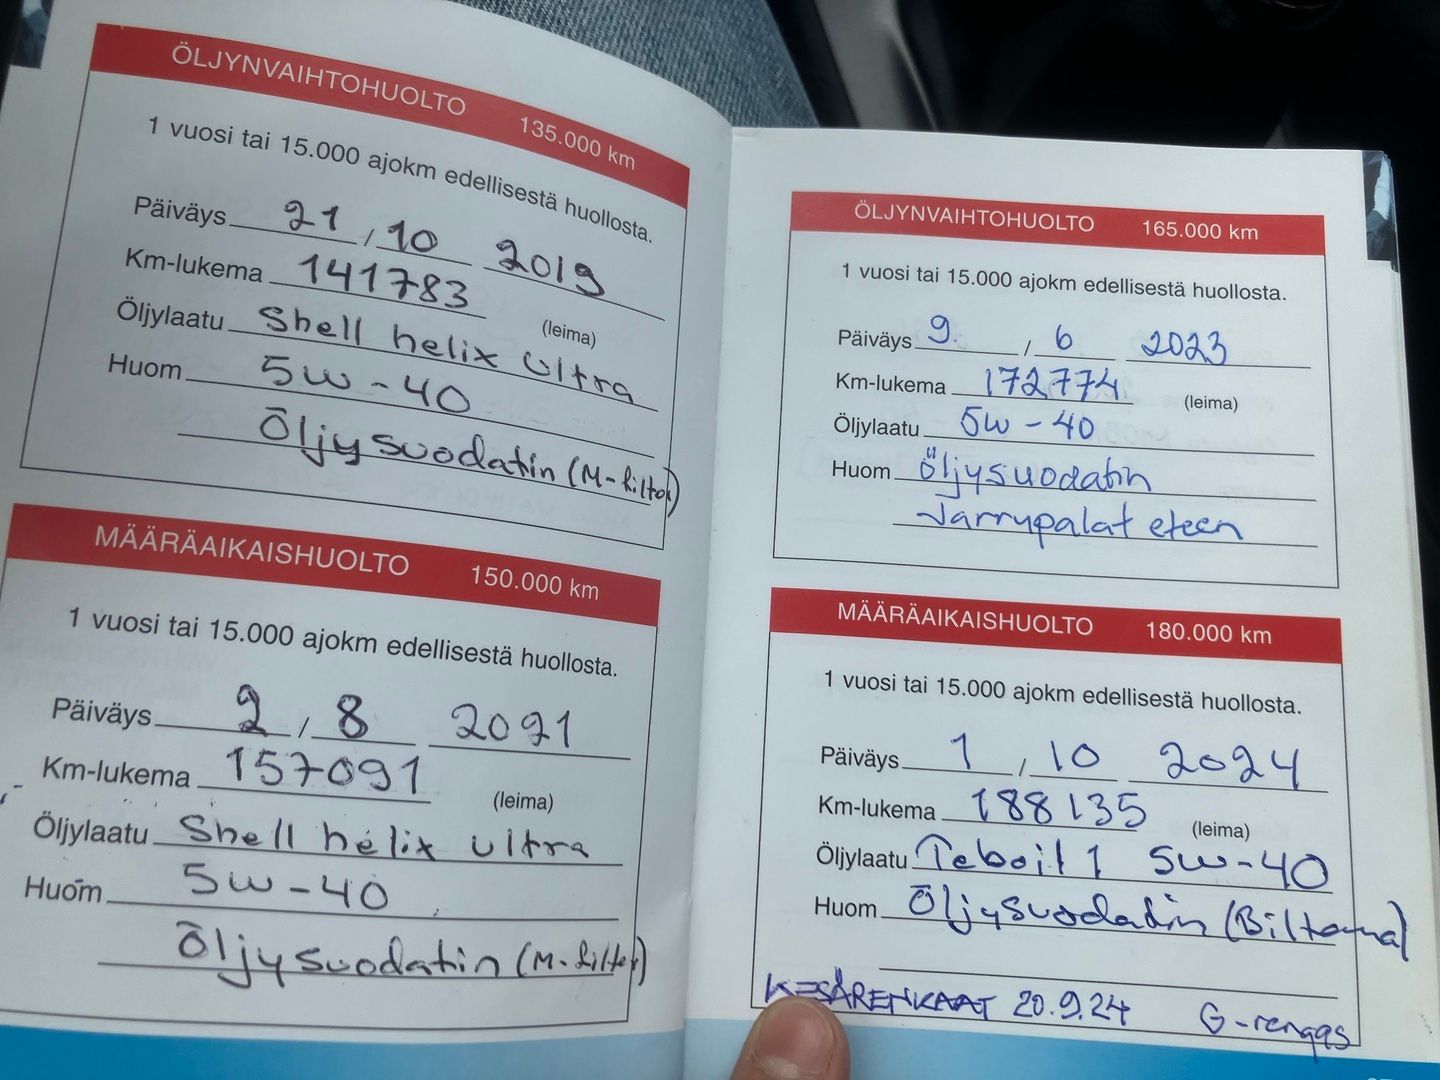 ÖLJYNVAIHTOHUOLTO 135.000 km
1 vuosi tai 15.000 ajokm edellisestä huollosta.
Päiväys 21 / 10 2019
Km-lukema 141783
(leima)
Öljylaatu Shell helix Ultra
Huom 5w-40
Öljysuodatin (M-filter)
MÄÄRÄAIKAISHUOLTO 150.000 km
1 vuosi tai 15.000 ajokm edellisestä huollosta.
Päiväys 2 / 8 2021
Km-lukema 157091
(leima)
Öljylaatu Shell helix ultra
Huom 5w-40
Öljysuodatin (M-filter)
ÖLJYNVAIHTOHUOLTO 165.000 km
1 vuosi tai 15.000 ajokm edellisestä huollosta.
Päiväys 9. / 6 2023
Km-lukema 172774
(leima)
Öljylaatu 5w-40
Huom öljysuodatin
Jarrupalat eteen
MÄÄRÄAIKAISHUOLTO 180.000 km
1 vuosi tai 15.000 ajokm edellisestä huollosta.
Päiväys 1 / 10 2024
Km-lukema 188135
(leima)
Öljylaatu Teboil 1 5w-40
Huom Öljysuodatin (Biltema)
KESÄRENKAAT 20.9.24 G-rengas